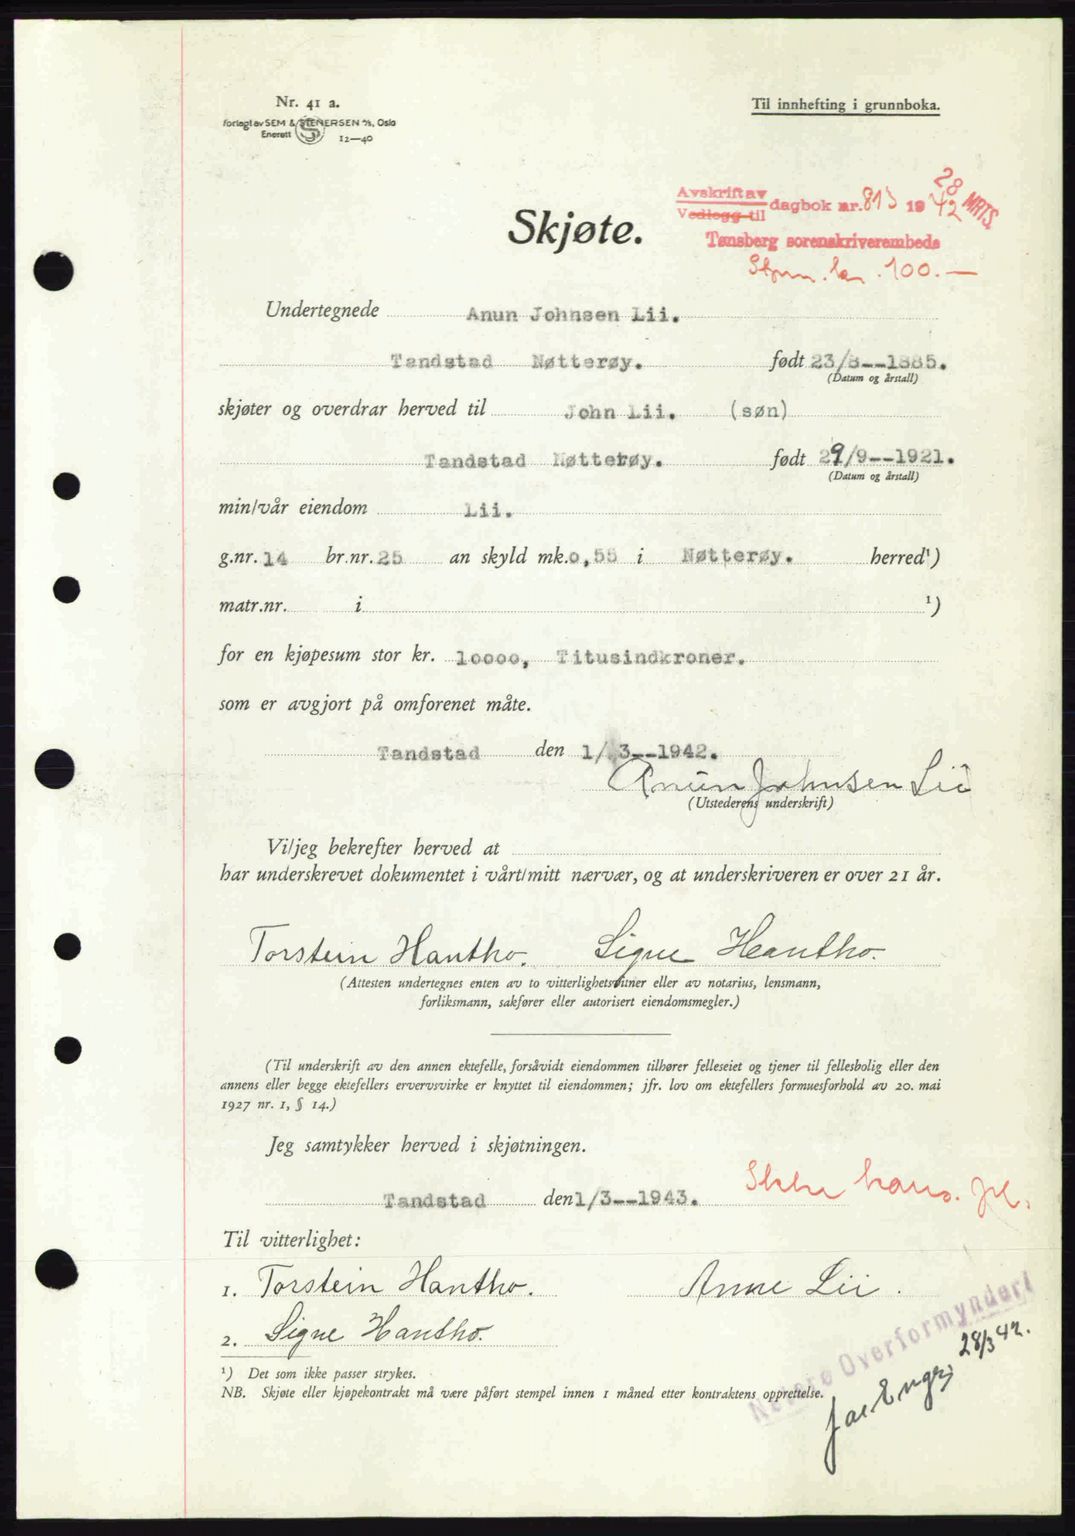 Nr. 41 a.
Forlagt av SEM & STENERSEN A/S, Oslo
Enerett 12—40
Til innhefting i grunnboka.
Avskrift av
Vedlegg til dagbok nr. 813 1942
28 MRTS.
Tønsberg sorenskriverembede
100.—
Skjøte.
Undertegnede Anun Johnsen Lii.
Tandstad Nøtterøy. født 23/8--1885.
(Datum og årstall)
skjøter og overdrar herved til John Lii. (søn)
Tandstad Nøtterøy. født 29/9--1921.
(Datum og årstall)
min/vår eiendom Lii.
g.nr. 14 br.nr. 25 an skyld mk. 0,55 i Nøtterøy. herred¹)
matr.nr. i ¹)
for en kjøpesum stor kr. 10000, Titusindkroner.
som er avgjort på omforenet måte.
Tandstad den 1/3--1942.
Anun Johnsen Lii
(Utstederens underskrift)
Vi/jeg bekrefter herved at
har underskrevet dokumentet i vårt/mitt nærvær, og at underskriveren er over 21 år.
Torstein Hantho. Signe Hantho.
(Attesten undertegnes enten av to vitterlighetsvitner eller av notarius, lensmann,
forliksmann, sakfører eller autorisert eiendomsmegler.)
(Til underskrift av den annen ektefelle, forsåvidt eiendommen tilhører felleseiet og tjener til fellesbolig eller den
annens eller begge ektefellers ervervsvirke er knyttet til eiendommen; jfr. lov om ektefellers formuesforhold av 20. mai
1927 nr. 1, § 14.)
Jeg samtykker herved i skjøtningen.
Tandstad den 1/3--1943.
Til vitterlighet:
1. Torstein Hantho. Anne Lii.
2. Signe Hantho.
¹) Det som ikke passer strykes.
NB. Skjøte eller kjøpekontrakt må være påført stempel innen 1 måned etter kontraktens opprettelse.
Overformynderi
28/3 42.